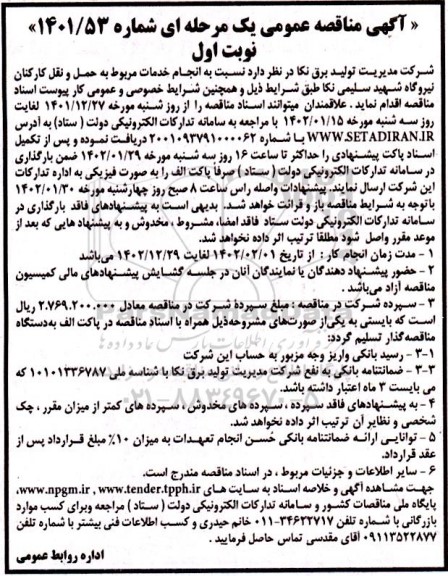 « آگهی مناقصه عمومی یک مرحله ای شماره ۱۴۰۱/۵۳»
نوبت اول
شرکت مدیریت تولید برق نکا در نظر دارد نسبت به انجام خدمات مربوط به حمل و نقل کارکنان
نیروگاه شهید سلیمی نکا طبق شرایط ذیل و همچنین شرایط خصوصی و عمومی کار پیوست اسناد
مناقصه اقدام نماید . علاقمندان میتوانند اسناد مناقصه را از روز شنبه مورخه ۱۴۰۱/۱۲/۲۷ لغایت
روز سه شنبه مورخه ۱۴۰۲/۰۱/۱۵ با مراجعه به سامانه تدارکات الکترونیکی دولت ( ستاد ) به آدرس
WWW.SETADIRAN.IR با شماره ۲۰۰۱۰۹۳۷۹۱۰۰۰۰۶۲ دریافت نموده و پس از تکمیل
اسناد پاکت پیشنهادی را حداکثر تا ساعت ۱۶ روز سه شنبه مورخه ۱۴۰۲/۰۱/۲۹ ضمن بارگذاری
در سامانه تدارکات الکترونیکی دولت ( ستاد ) صرفاً پاکت الف را به صورت فیزیکی به اداره تدارکات
این شرکت ارسال نمایند. پیشنهادات واصله راس ساعت ۸ صبح روز چهارشنبه مورخه ۱۴۰۲/۰۱/۳۰
باتوجه به شرایط مناقصه باز و قرائت خواهد شد. بدیهی است به پیشنهادهای فاقد بارگذاری در
سامانه تدارکات الکترونیکی دولت ستاد فاقد امضا، مشروط ، مخدوش و به پیشنهاد هایی که بعد از
موعد مقرر واصل شود مطلقا ترتیب اثر داده نخواهد شد.
۱ - مدت زمان انجام کار : از تاریخ ۱۴۰۲/۰۲/۰۱ لغایت ۱۴۰۲/۱۲/۲۹ می‌باشد
۲ - حضور پیشنهاد دهندگان یا نمایندگان آنان در جلسه گشایش پیشنهادهای مالی کمیسیون
مناقصه آزاد می‌باشد .
۳ - سپرده شرکت در مناقصه : مبلغ سپردهٔ شرکت در مناقصه معادل ۲.۷۶۹.۲۰۰.۰۰۰ ریال
است که بایستی به یکی‌از صورت‌های مشروحه‌ذیل همراه با اسناد مناقصه در پاکت الف به‌دستگاه
مناقصه‌گذار تسلیم گردد:
۳-۱ - رسید بانکی واریز وجه مزبور به حساب این شرکت
۳-۳ - ضمانتنامه بانکی به نفع شرکت مدیریت تولید برق نکا با شناسه ملی ۱۰۱۰۱۳۳۶۷۸۷ که
می بایست ۳ ماه اعتبار داشته باشد.
۴ - به پیشنهادهای فاقد سپرده ، سپرده های مخدوش ، سپرده های کمتر از میزان مقرر ، چک
شخصی و نظایر آن ترتیب اثر داده نخواهد شد.
۵ - توانایی ارائه ضمانتنامه بانکی حُسن انجام تعهدات به میزان ۱۰٪ مبلغ قرارداد پس از
عقد قرارداد.
۶ - سایر اطلاعات و جزئیات مربوط ، در اسناد مناقصه مندرج است.
جهت مشاهده آگهی و خلاصه اسناد به سایت های www.npgm.ir , www.tender.tpph.ir،
پایگاه ملی مناقصات کشور و سامانه تدارکات الکترونیکی دولت ( ستاد ) مراجعه وبرای کسب موارد
بازرگانی با شماره تلفن ۳۴۶۲۲۷۱۷-۰۱۱ خانم حیدری و کسب اطلاعات فنی بیشتر با شماره تلفن
۰۹۱۱۳۵۲۲۸۷۷ آقای مقدسی تماس حاصل فرمایید .
اداره روابط عمومی
ParsNamadData
۰۲۱-۸۸۳۴۹۶۷۰-۵